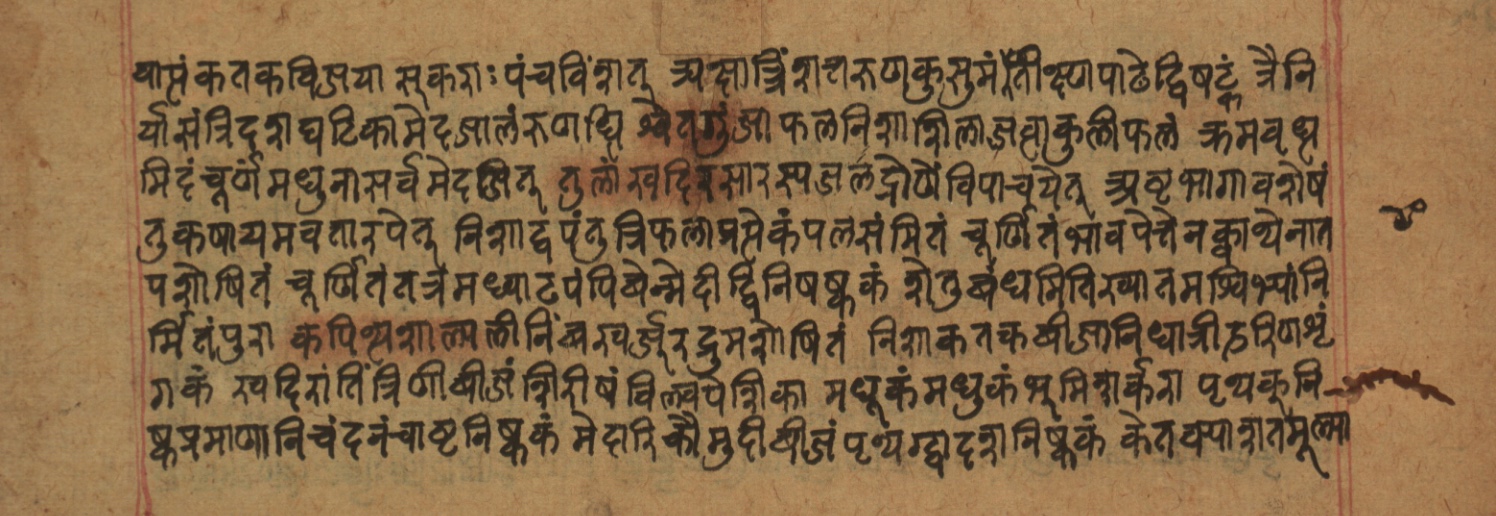 याप्तं कतकविजया सूकराः पंचविंशत् अक्षास्त्रिंशत्तरुणकुसुमं तीक्ष्णपाठेद्विषट्कं त्रैनि
र्यासं त्रिदशघटिका मेदजालं रुणद्धि श्वेतगुंजाफलनिशाशिलाजत्वाकुलीफलं क्रमवृध्य
मिदं चूर्णं मधुना सर्वमेदजित् तुलां खदिरसारस्यजलद्रोणे विपाचयेत् अष्टभागावशेषं
तु कषायमवतारयेत् निशाद्वयंतु त्रिफलाप्रत्येकं पलसंमितं चूर्णितं भावयेत्तेन क्वाथेनात
पशोषितं चूर्णितं तत्रमध्वाढयं पिबेन्मेदी द्विनिषष्ककं शेतुबंधमितिख्यातमश्विभ्यांनि
र्मितंपुरा कपिथ्थशाल्मलीनिंबखर्जूरद्रुमशोषितं निशाकतकबीजानिधात्रीहरिणशृं
गकं खदिरांतिंत्रिणीबीजं शिरीषं विल्वपेशिका मधूकं मधुकं भूमिशर्करा पृथक् नि
ष्कप्रमाणानि चंदनं चाष्टनिष्ककं मेदारिकौमुदीबीजं पृथग्द्वादशनिष्ककं केतक्याशतमूल्या